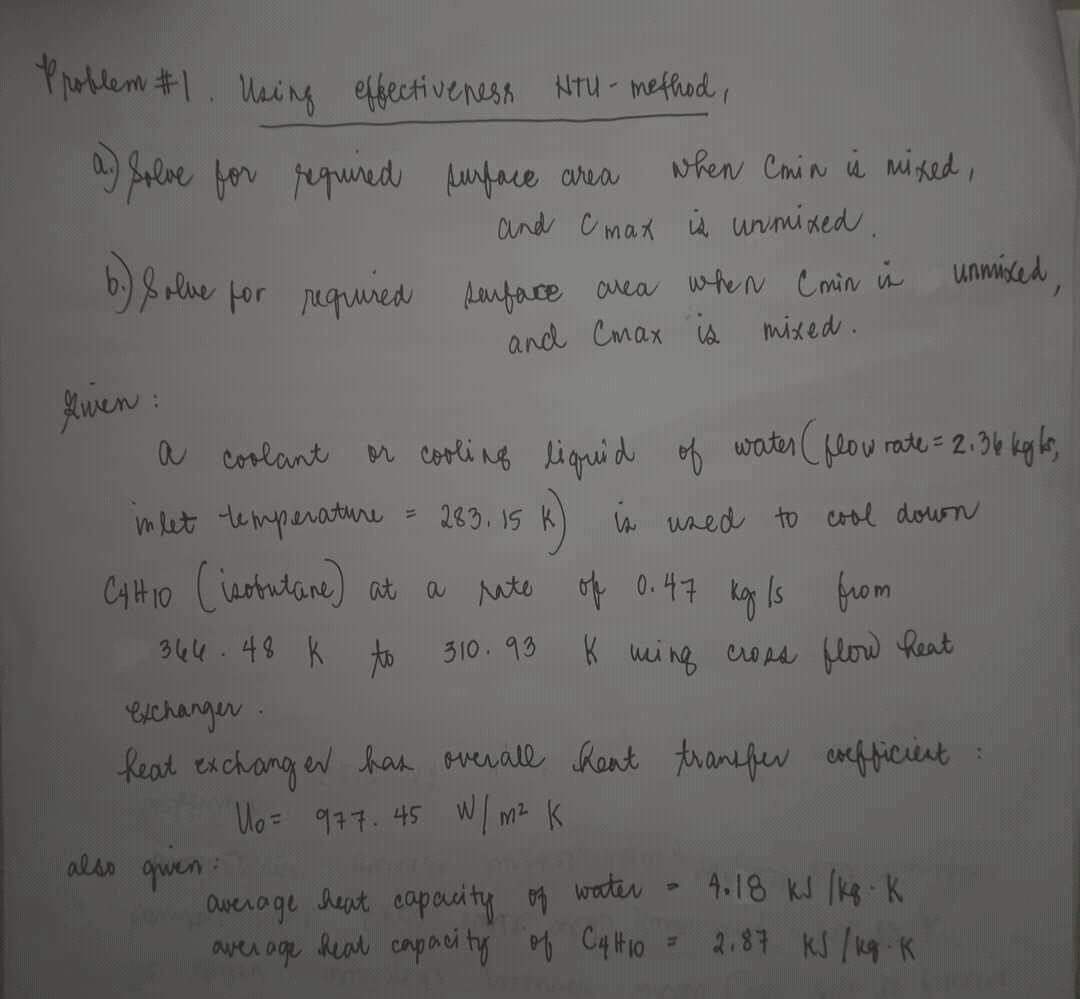 Problem #1. Using effectiveness NTU-method,
a.) Solve for required surface area when Cmin is mixed,
and Cmax is unmixed.
b.) Solve for required surface area when Cmin is unmixed,
and Cmax is mixed.
Given:
a coolant or cooling liquid of water (flow rate = 2.36 kg/s,
inlet temperature = 283.15 K) is used to cool down
C4H10 (isobutane) at a rate of 0.47 kg/s from
366.48 K to 310.93 K using cross flow heat
exchanger.
heat exchanger has overall heat transfer coefficient:
Uo = 977.45 W/m² K
also given:
average heat capacity of water = 4.18 kJ/kg·K
average heat capacity of C4H10 = 2.87 kJ/kg·K